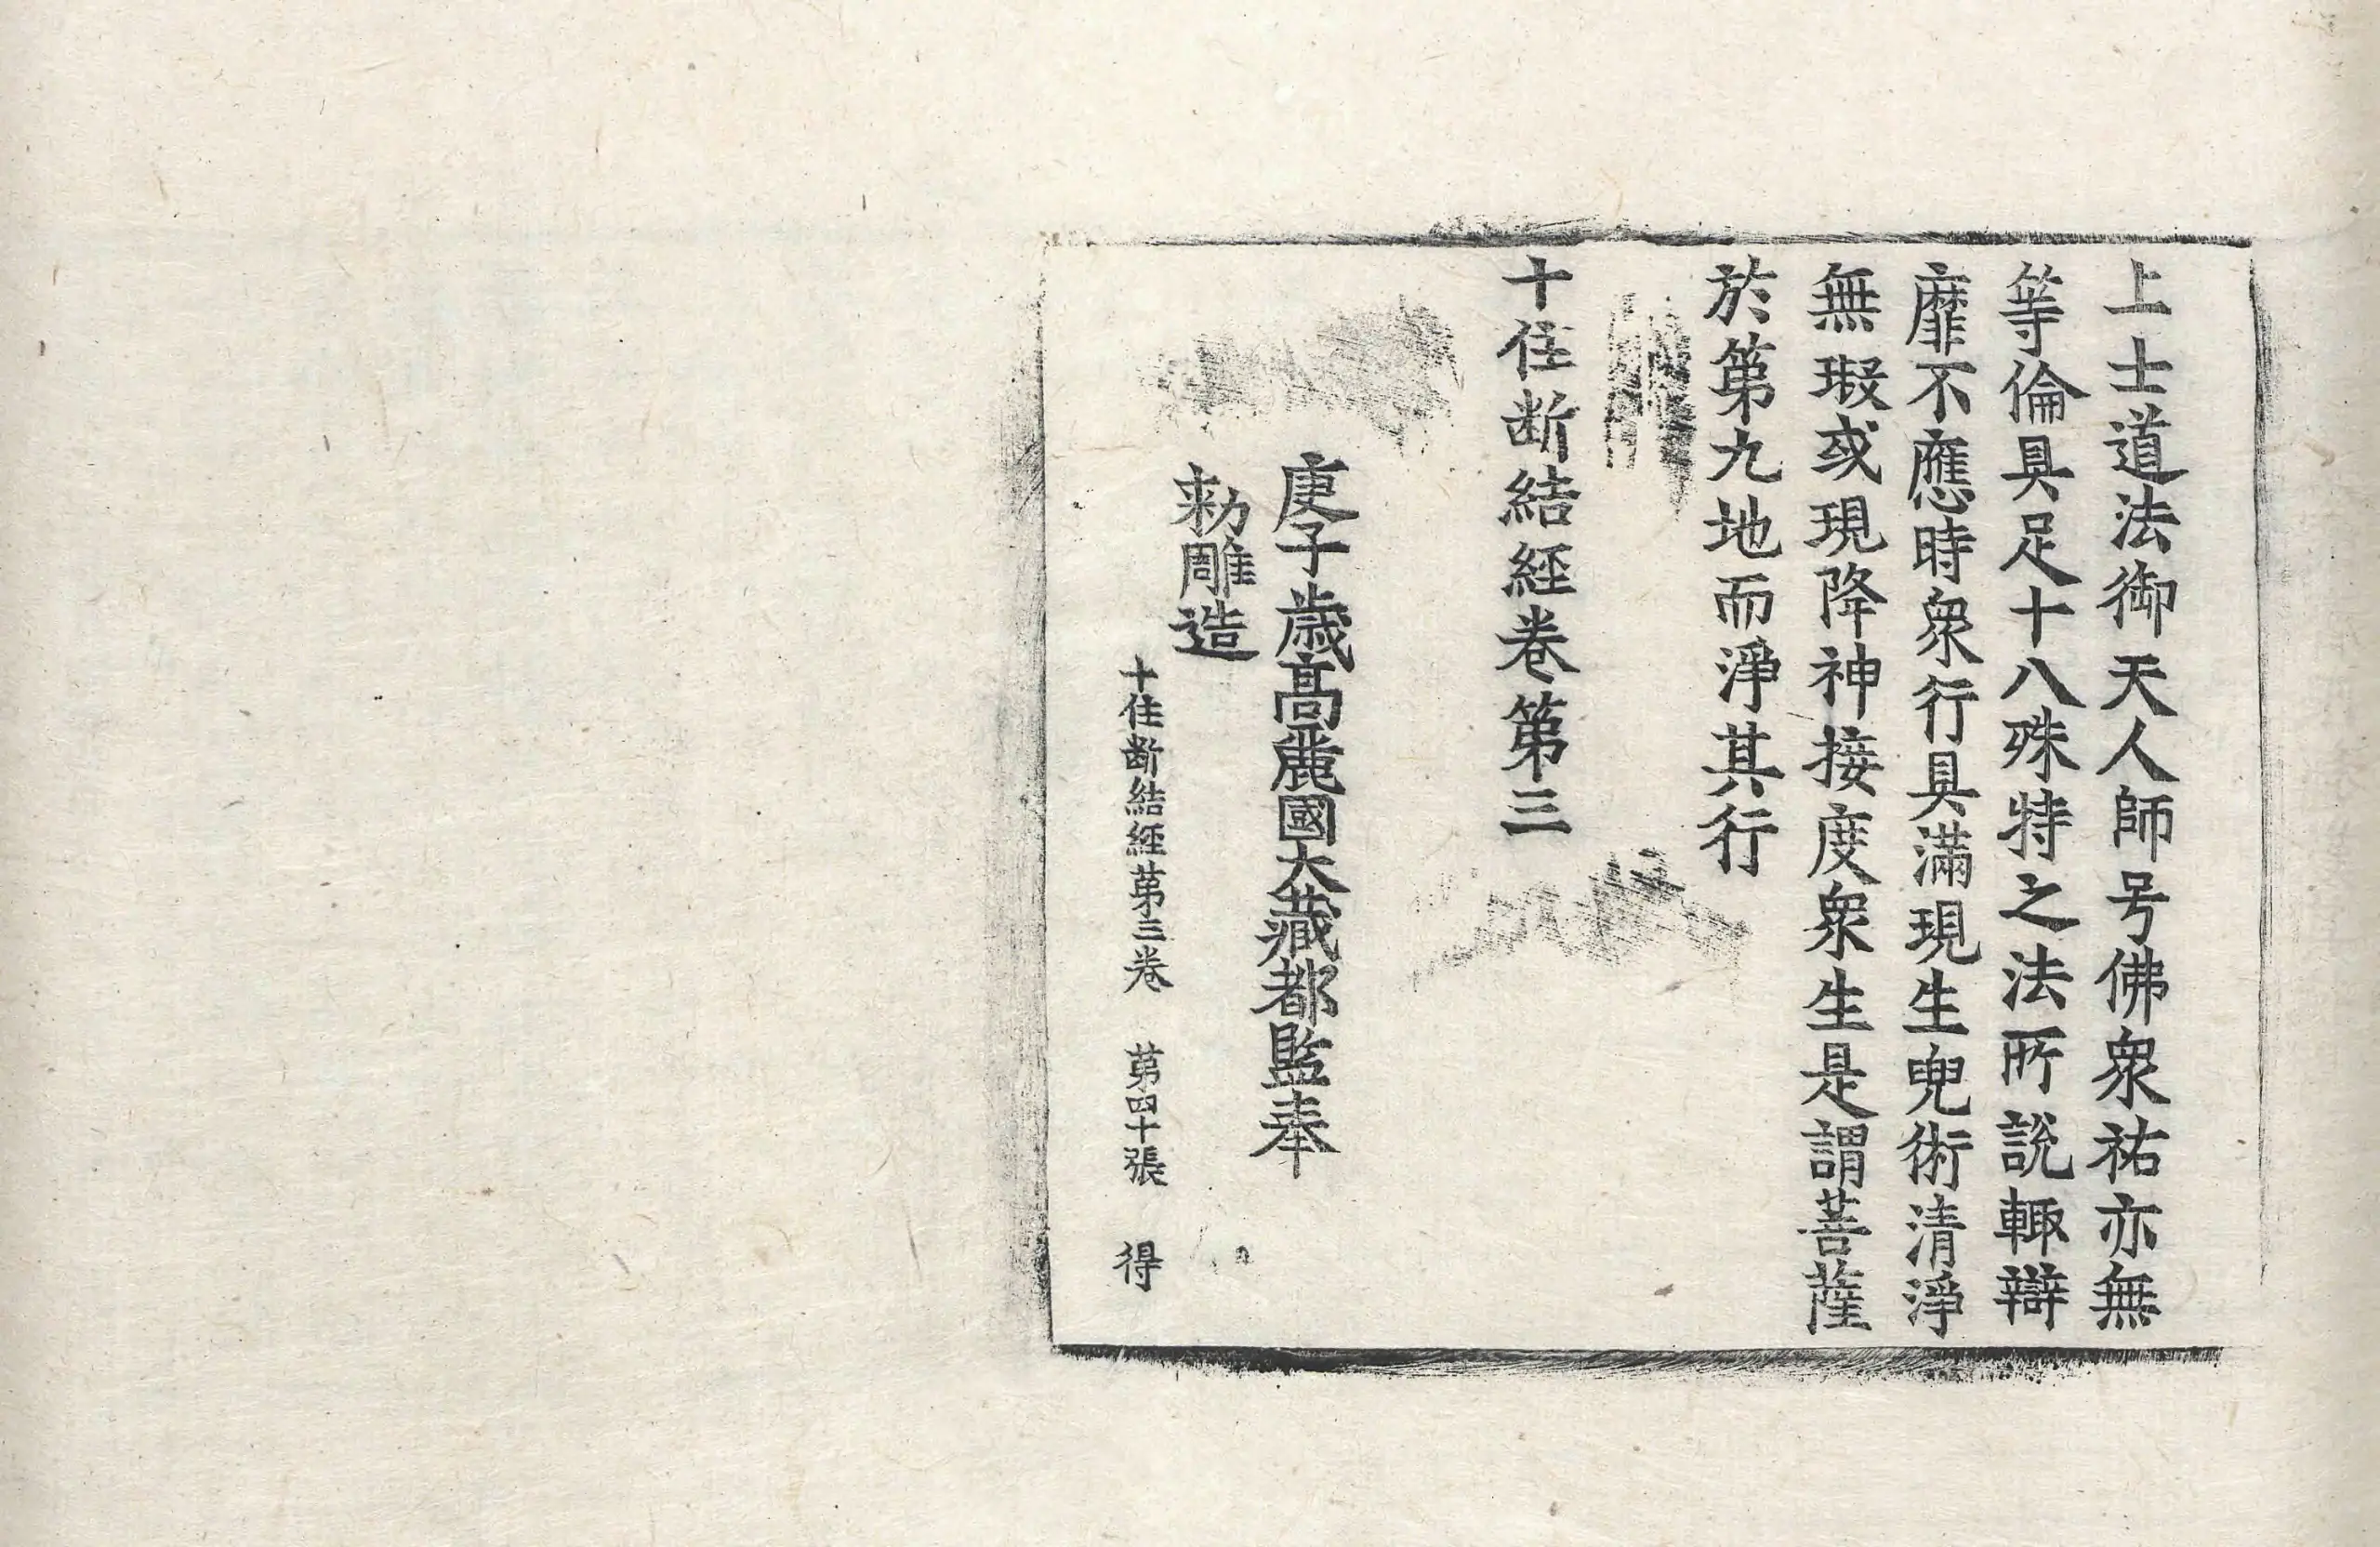 上士道法御天人師号佛衆祐亦無
等倫具足十八殊特之法所說輙辯
靡不應時衆行具滿現生兜術清淨
無瑕或現降神接度衆生是謂菩薩
於第九地而淨其行
十住断結経卷第三
庚子歳高麗國大藏都監奉
勑雕造
十住断結経第三卷 第四十張 得